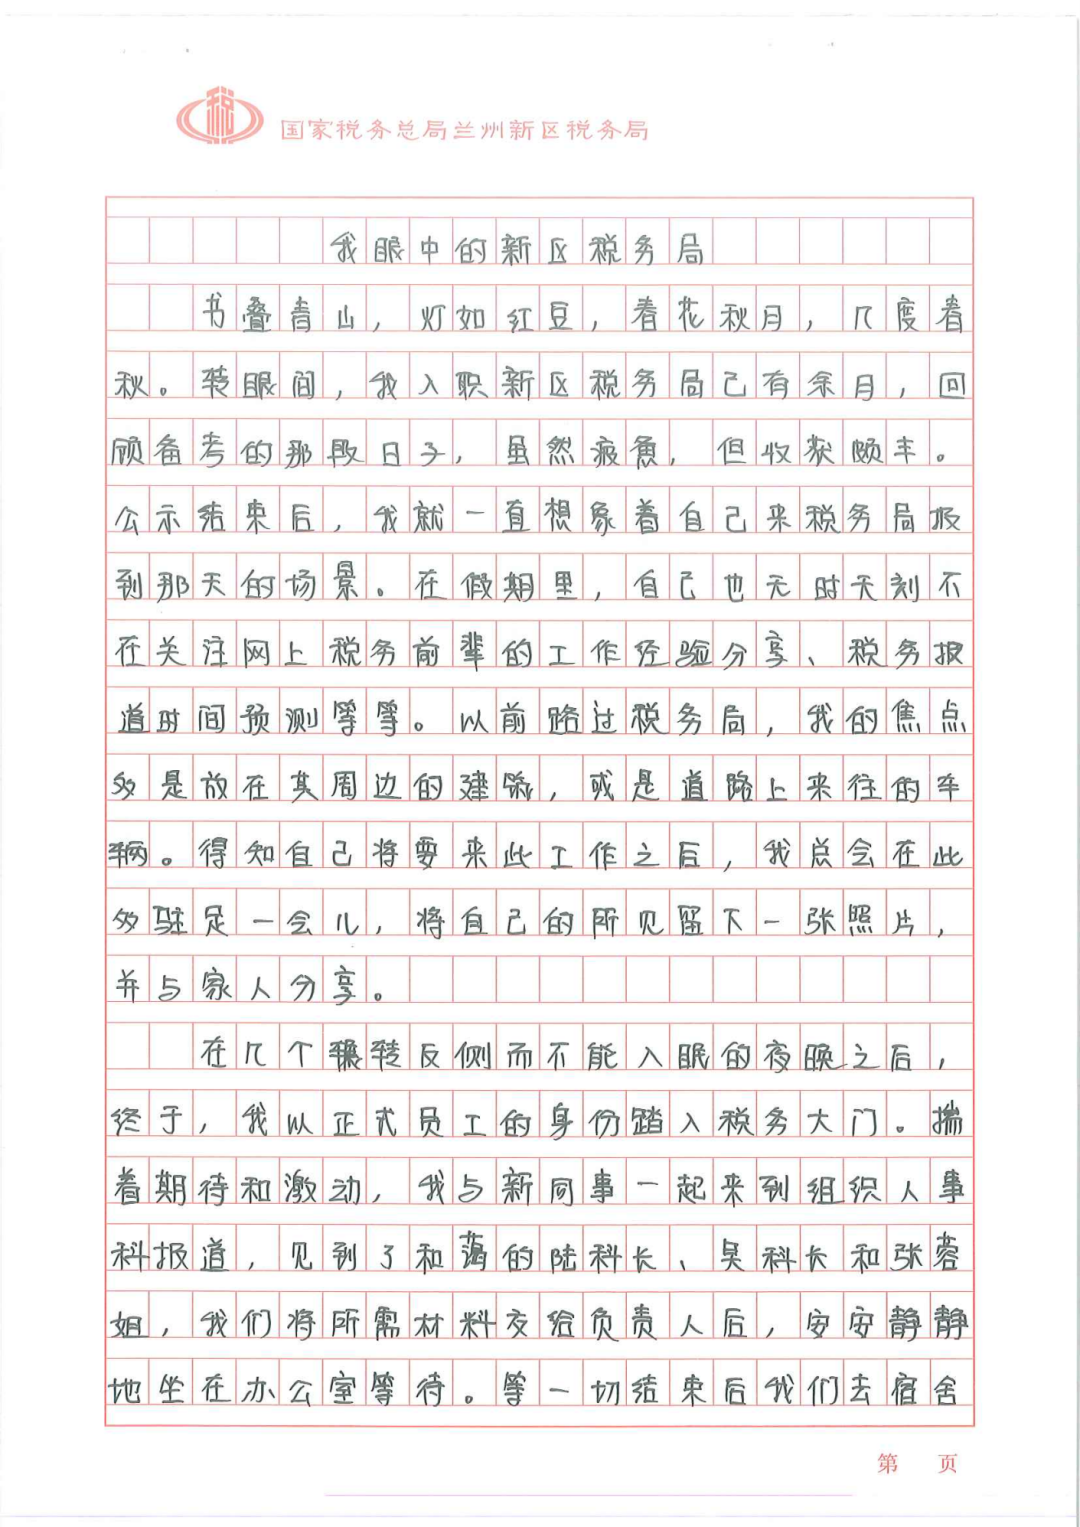 税
国家税务总局兰州新区税务局
我眼中的新区税务局
书叠青山，灯如红豆，春花秋月，几度春
秋。转眼间，我入职新区税务局已有余月，回
顾备考的那段日子，虽然疲惫，但收获颇丰。
公示结束后，我就一直想象着自己来税务局报
到那天的场景。在假期里，自己也无时无刻不
在关注网上税务前辈的工作经验分享、税务报
道时间预测等等。以前路过税务局，我的焦点
多是放在其周边的建筑，或是道路上来往的车
辆。得知自己将要来此工作之后，我总会在此
多驻足一会儿，将自己的所见留下一张照片，
并与家人分享。
在几个辗转反侧而不能入眠的夜晚之后，
终于，我以正式员工的身份踏入税务大门。揣
着期待和激动，我与新同事一起来到组织人事
科报道，见到了和蔼的陆科长、吴科长和张蓉
姐，我们将所需材料交给负责人后，安安静静
地坐在办公室等待。等一切结束后我们去宿舍
第 页